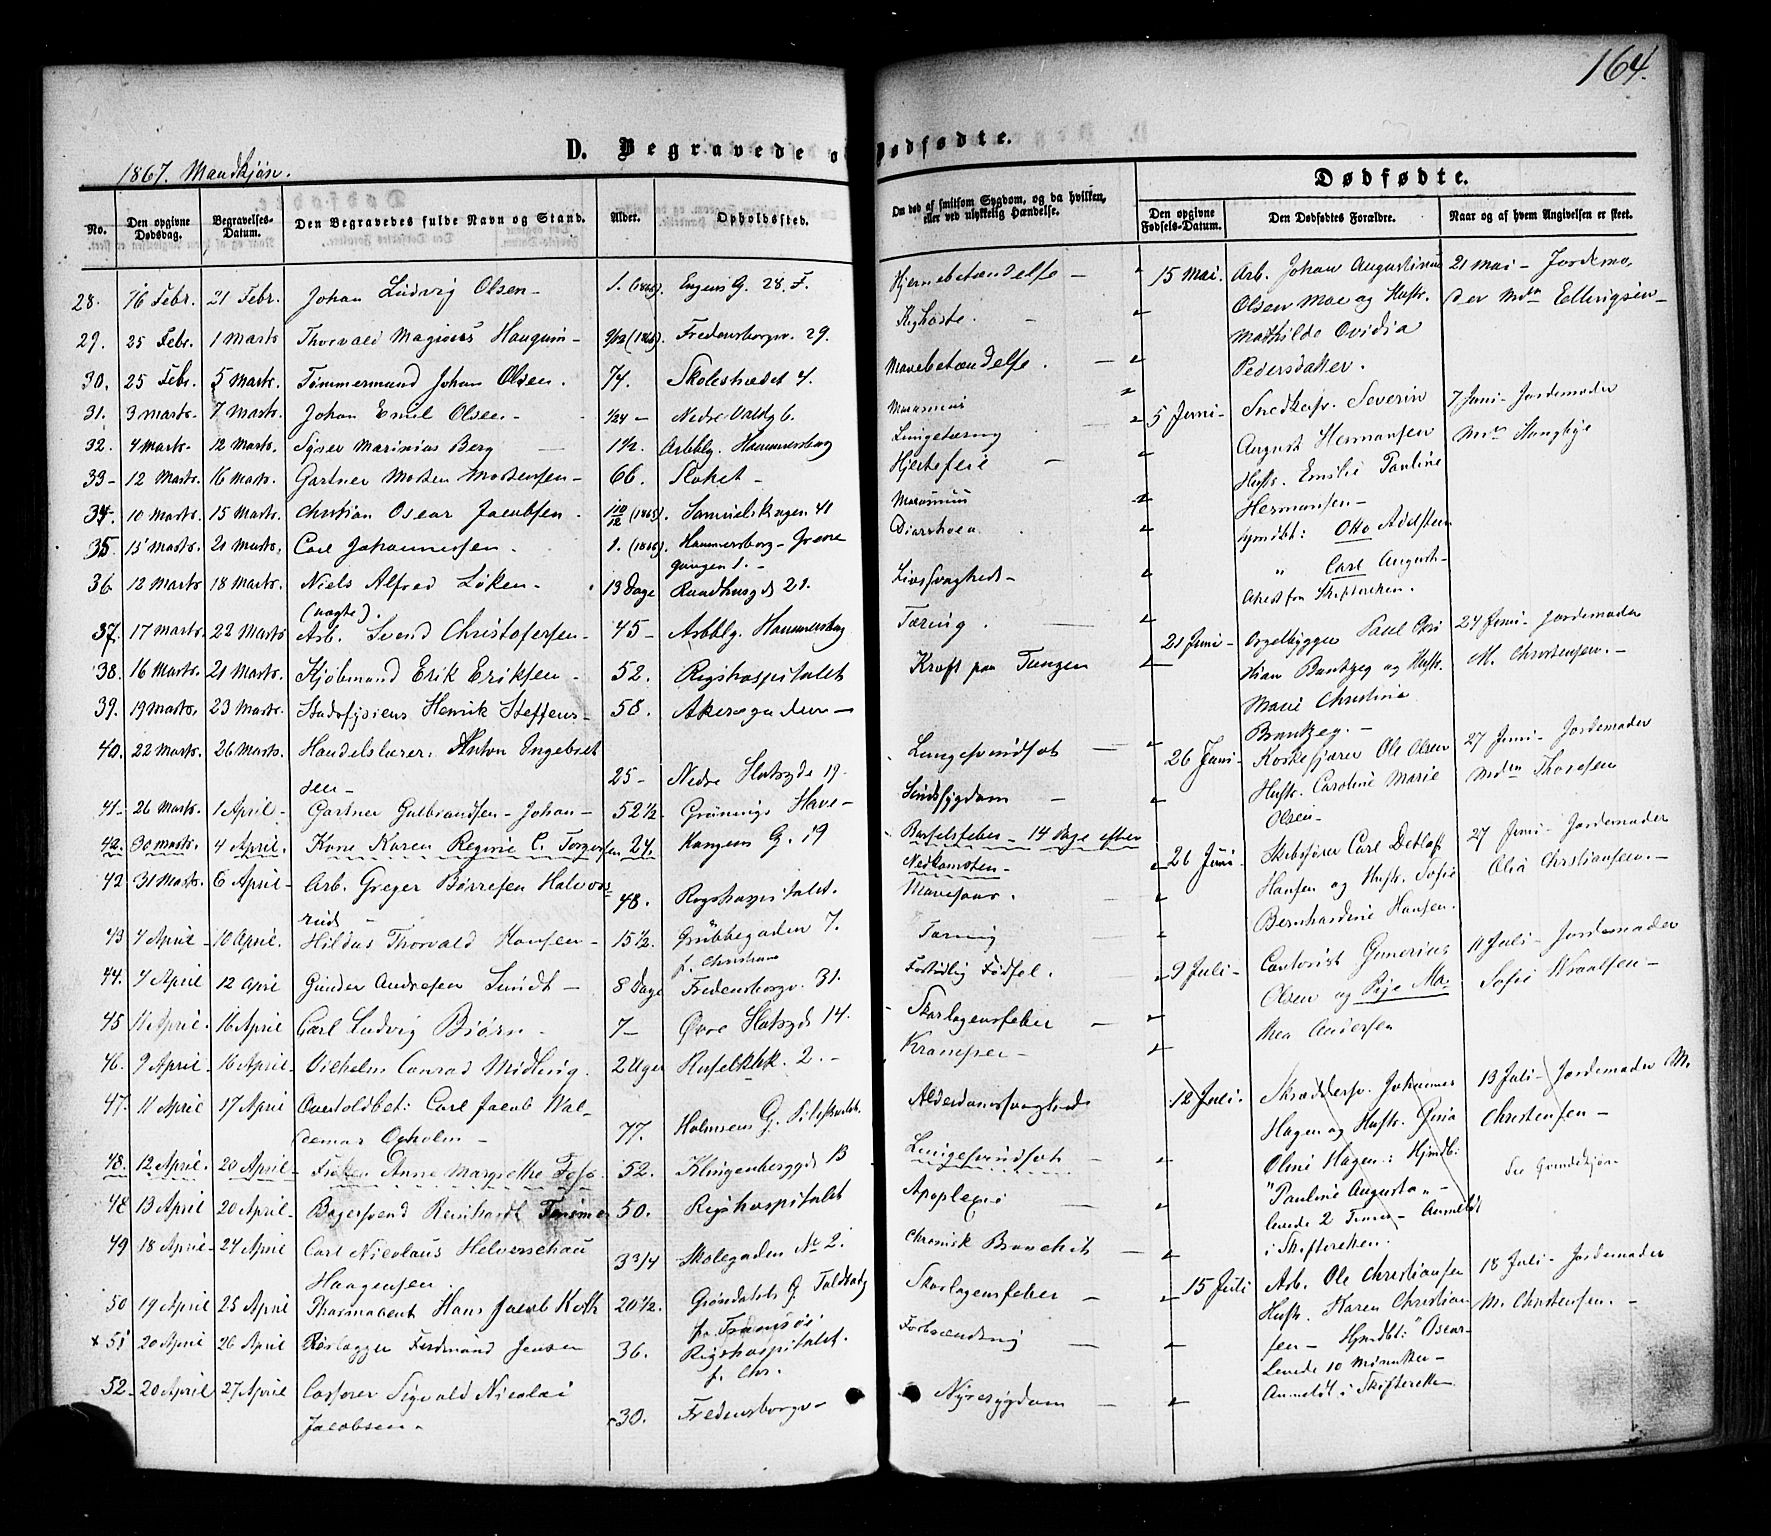 164.
D. Begravede o
Dødfødte.
1867. Mandkjøn.
Dødfødte.
No.
Den opgivne Dødsdag.
Begravelses-Datum.
Den Begravedes fulde Navn og Stand.
Alder.
Opholdssted.
Om død af smitsom Sygdom, og da hvilken, eller ved ulykkelig Hændelse.
Den opgivne Fødsels-Datum.
Den Dødfødtes Forældre.
Naar og af hvem Angivelsen er skeet.
28. 16 Febr. 21 Febr. Johan Ludvig Olsen - 1. (1866) Engens G. 28. F. Hjernebetændelse -
29. 25 Febr. 1 Marts Thorvald Magnus Haugum - 9/12 (1866). Fredensborgv. 29. Kighoste. -
30. 25 Febr. 5 Marts. Tømmermand Johan Olsen. 74. Skolestrædet 4. Mavebetændelse. -
31. 3 Marts. 7 Marts. Johan Emil Olsen - 1/24 - Nedre Voldg 6. Marasmus
32. 4 Marts. 12 Marts. Marinius Berg 1 1/2. Arbblg. Hammersborg Lungetæring
33 - 12 Marts. 16 Marts. Gartner Morten Mortensen - 66. Slottet - Hjertefeil -
34. 10 Marts. 15 Marts. Christian Oscar Jacobsen. 1 10/12 (1865). Samuelskrogen 41 Marasmus
35. 15 Marts. 21 Marts. Carl Johannessen. 1. (1866). Hammersborg - Grændsegangen 1. - Diarrhoea
36. 12 Marts 18 Marts. Niels Alfred Løken - 13 Dage Raadhusgd 21. Livssvaghed -
(uægte).
37. 17 Marts. 22 Marts Arb. Svend Christofersen - 45 - Arbblg. Hammersborg Tæring.
38. 16 Marts. 21 Marts. Kjøbmand Erik Eriksen - 52. Rigshospitalet Kræft paa Tungen
39. 19 Marts. 23 Marts. Stadsfysicus Henrik Steffens - 58. Akersgaden -
40. 22 Marts. 26 Marts. Handelslærer. Anton Ingebret
sen - 25 - Nedre Slotsgde 19. Lungesvindsot -
41 - 26 Marts. 1 April - Gartner Gulbrandsen - Johan - 52 1/2. Grønings Have - Sindssygdom -
42. 30 Marts. 4 April. Kone Karen Regine C. Torgersen 24. Kongens G. 19 Barselfeber - 14 Dage efter Nedkomsten -
42 31 Marts. 6 April - Arb. Greger Børresen Halvors
rud 48. Rigshospitalet. Mavesaar.
43 4 April - 10 April. Hildus Thorvald Hansen - 15 1/2. Grubbegaden 7. Tæring
f. Christiania
44. 4 April 12 April Gunder Andresen Sundt - 8 Dage Fredensborgv. 31. Fortidlig Fødsel.
45 11 April. 16 April Carl Ludvig Bjørn. 7 - Øvre Slotsgd 14. Skarlagensfeber -
46. 9 April - 16 April - Vilhelm Conrad Midling. 2 Uger 2. - Kramper -
47. 11 April 17 April Overtoldbet: Carl Jacob Wal-
demar Opholm - 77. Holmsens G. Pilestrædet. Alderdomssvaghed
48. 12 April. 20 April - Frøken Anne Margrethe Foss. 52. Klingenberggd 13 Lungesvindsot -
48 13 April 20 April - Bagersvend Reinhardt 50. Rigshospitalet Apoplexie
49 18 April - 24 April Carl Nicolaus Helverschou
Haagensen. 3 3/4 Skolegaden No 2. Chronisk Bronchit -
50 19 April 25 April Pharmaceut Hans Jacob Koth 20 1/2. Grøndahls G. Toldbodg Skarlagensfeber -
fra Tromsø.
x 51 20 April 26 April Reislagger Ferdinand Jensen 36. Rigshospitalet. Forbrænding -
f. Chr.
52 - 20 April 27 April Casserer Sigvald Nicolai
Jacobsen - 30. Fredensborgv - Nyresygdom -
15 Mai. Arb. Johan Augustinus 21 Mai - Jordemo-
Olsen Moe og Hustr. der Mdm Ellingsen -
Mathilde Ovidia
Pedersdatter.
5 Juni - Snedkersv. Severin 7 Juni - Jordemoder
August Hermansen Mdm Stangbye
Hustr. Emilie Pauline
Hermansen -
hjmdbt: Otto Adolsten
" Carl August -
Attest fra Skifteretten.
21 Juni - Orgelbygger Paul Chri 24 Juni - Jordemoder
stian Brantzeg og Hustr. M. Christensen. -
Marie Christine
Brantzeg. -
26 Juni - Ole Olsen 27 Juni - Jordemoder
Hustr. Caroline Marie Mdm Thoresen
Olsen -
26 Juni - Skibsfører Carl Detlof 27 Juni - Jordemoder
Hansen og Hustr. Sofie Olia Christiansen. -
Bernhardine Hansen.
9 Juli - Contorist Gunerius 11 Juli - Jordemoder
Olsen og Pige Ma- Sofie Wraalsen -
thea Andersen
12 Juli. Skræddersv. Johannes 13 Juli - Jordemoder M.
Hagen og Hustr. Gina Christensen -
Oline Hagen: Hjmdb:
"Pauline Augusta" - See Qvindekjøn
levede 2 Timer - Anmeldt
i Skifteretten.
15 Juli Arb. Ole Christiansen 18 Juli - Jordemoder
Hustr. Karen Christian M. Christensen. -
sen - Hjmdbt: "Oscar-
Levede 10 Minutter -
Anmeldt i Skifteretten